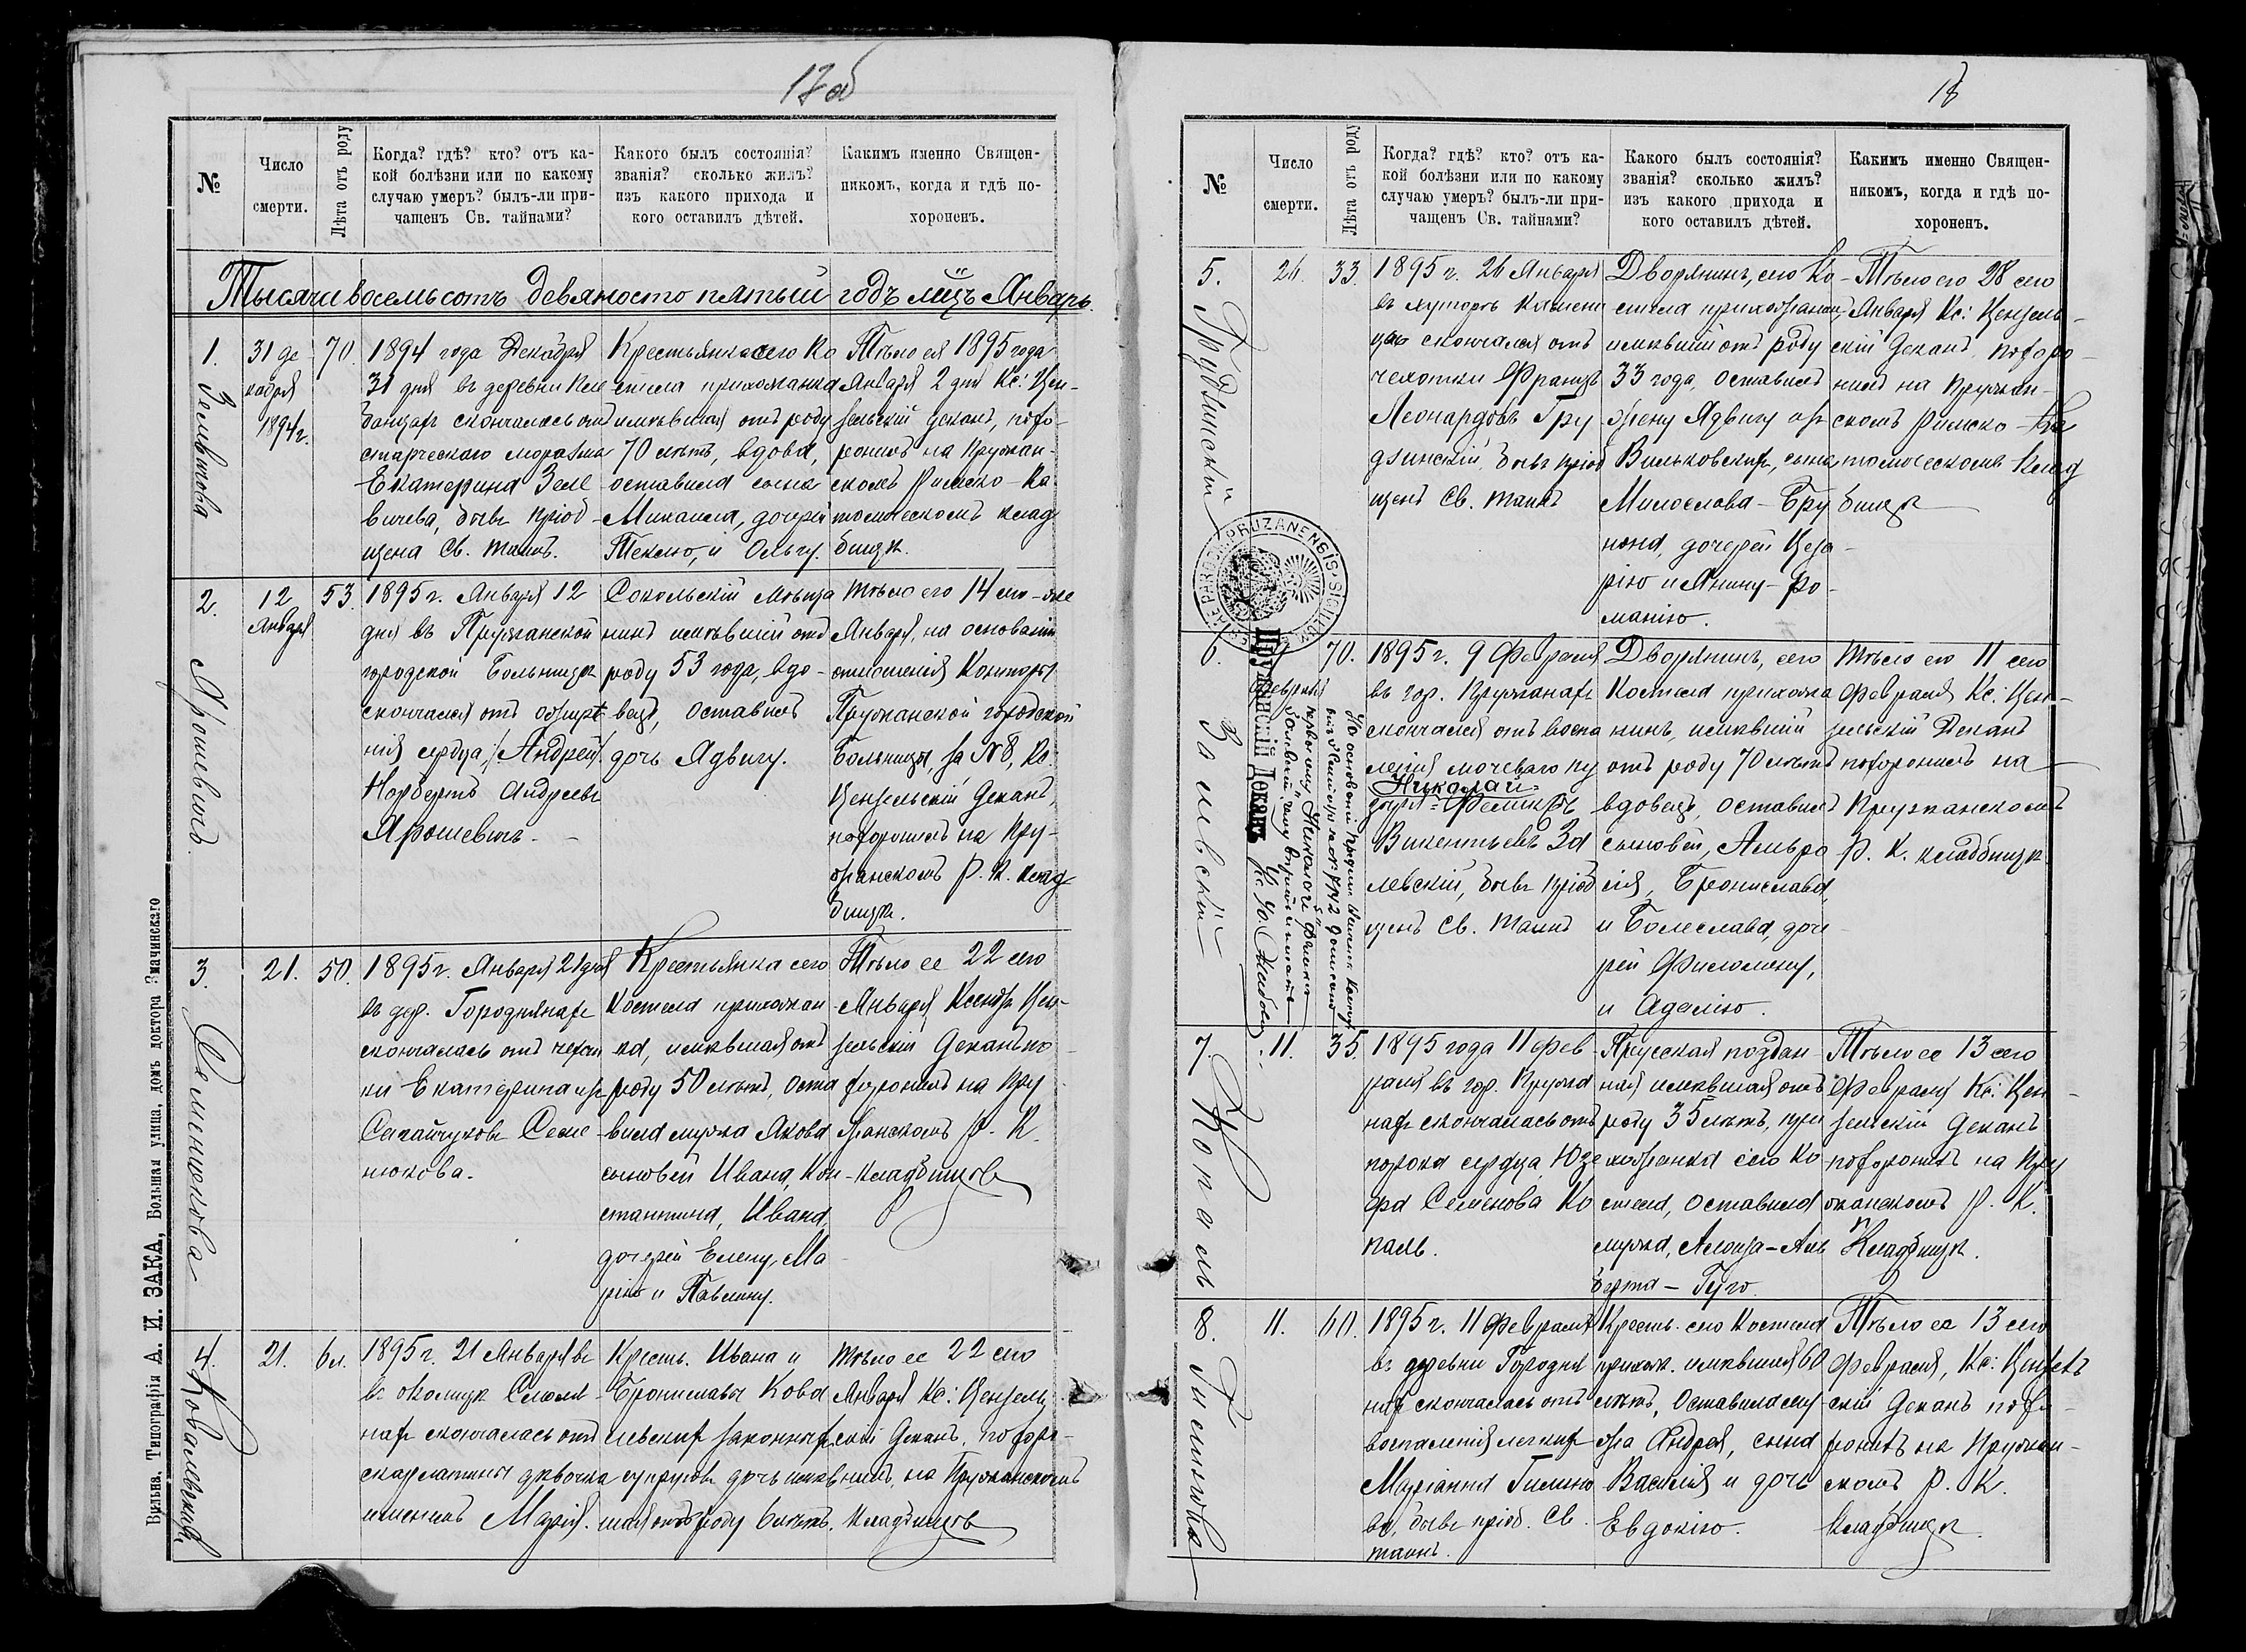 17 об
№
Число
смерти.
Лѣта отъ роду
Когда? гдѣ? кто? отъ ка-
кой болѣзни или по какому
случаю умеръ? былъ-ли при-
чащенъ Св. тайнами?
Какого былъ состоянія?
званія? сколько жилъ?
изъ какого прихода и
кого оставилъ дѣтей.
Какимъ именно Священ-
никомъ, когда и гдѣ по-
хороненъ.
Тысяча восемьсотъ девяносто пятый годъ мцъ Январь.
1.
31 де
кабря
1894 г.
70
1894 года Декабря
31 дня въ деревни
скончалась отъ
старческаго моразма
Екатерина Зеле
вичева, бывъ пріоб-
щена Св. таинъ.
Крестьянка сего Ко
стела прихожанка
имѣвшая отъ роду
70 лѣтъ, вдова,
оставила сына
Михаила, дочерей
Теклю, и Ольгу.
Тѣло ея 1895 года
Января 2 дня Кс: Цен-
зельскій Деканъ, похо-
ронилъ на Пружан-
скомъ Римско-Ка
толическомъ клад
бищѣ.
2.
Ярошевичъ
12
Января
53.
1895 г. Января 12
дня въ Пружанской
городской Больницѣ
скончался отъ ожирѣ
нія сердца, /Андрей/
Норбертъ Андреевъ
Ярошевичъ.
Сокольскій Мѣща
нинъ имѣвшій отъ
роду 53 года, вдо-
вецъ, оставилъ
дочь Ядвигу.
Тѣло его 14 сего-же
Января, на основаніи
отношенія Конторы
Пружанской городской
Больницы, за №8, Кс:
Цензельскій Деканъ,
похоронилъ на Пру-
жанскомъ Р. К. клад
бищѣ.
3.
Семенюкова
21.
50.
1895 г. Января 21 дня
въ дер. Городнянахъ
скончалась отъ чахот
ки Екатерина изъ
Сегайчуковъ Семе
нюкова.
Крестьянка сего
Костела прихожан
ка, имѣвшая отъ
роду 50 лѣтъ, оста
вила мужа Якова
сыновей Ивана, Кон-
стантина, Ивана,
дочерей Елену, Ма
рію и Павлину.
Тѣло ее 22 сего
Января Ксендзъ Цен-
зельскій Деканъ по
хоронилъ на Пру
жанскомъ Р. К.
Кладбищѣ
4.
Ковалевскихъ
21.
6 л.
1895 г. 21 Января въ
въ околицѣ
скончалась отъ
скарлатины дѣвочка
именемъ Марія.
Крестъ. Ивана и
Брониславы Кова
левскихъ законныхъ
супруговъ дочь имѣв
шая отъ роду 6 лѣтъ.
Тѣло ее 22 сего
Января Кс: Цензель
скій Деканъ, похоро-
нилъ, на Пружанскомъ
Кладбищѣ
Вильна. Типографія А. И. ЗАКА, Большая улица, домъ доктора Змачинскаго
18
№
Число
смерти.
Лѣта отъ роду
Когда? гдѣ? кто? отъ ка-
кой болѣзни или по какому
случаю умеръ? былъ-ли при-
чащенъ Св. тайнами?
Какого былъ состоянія?
званія? сколько жилъ?
изъ какого прихода и
кого оставилъ дѣтей.
Какимъ именно Священ-
никомъ, когда и гдѣ по-
хороненъ.
5.
Грудзинскій
26.
33.
1895 г. 26 Января
въ хуторѣ Камени
цѣ скончался отъ
чахотки Францъ
Леонардовъ Гру
дзинскій, бывъ пріоб
щенъ Св. таинъ
Дворянинъ, сего Ко-
стела прихожанинъ,
имѣвшій отъ роду
33 года, оставилъ
жену Ядвигу изъ
Вильковскихъ, сына
Милослава-Бру
нона, дочерей Цеза-
рію и Янину-Ро-
манію.
Тѣло его 28 сего
Января Кс: Цензель-
скій Деканъ, похоро-
нилъ на Пружан-
скомъ Римско-Ка
толическомъ Клад
бищѣ
6.
Залевскій
9
Февраля
70.
1895 г. 9 Февраля
въ гор. Пружанахъ
скончался отъ воспа
ленія мочеваго пу
Николай
зыря Феликсъ
Викентьевъ За
левскій, бывъ пріоб
щенъ Св. таинъ
Дворянинъ, сего
Костела прихожа
нинъ, имѣвшій
отъ роду 70 лѣтъ
вдовецъ, оставилъ
сыновей,
Бронислава,
и Болеслава, доче-
рей Филомену,
и Аделію.
Тѣло его 11 сего
Февраля Кс: Цен-
зельскій Деканъ
похоронилъ на
Пружанскомъ
Р. К. кладбищѣ.
Пружанскій Деканъ
7.
Копаль
11.
35.
1895 года 11 Фев
раля въ гор. Пружа
нахъ скончалась отъ
порока сердца Юзе
фа Семенова Ко
паль.
Прусская поддан-
ная имѣвшая отъ
роду 35 лѣтъ, при
хожанка сего Ко
стела, оставила
мужа, Алоиза-Аль
берта-Гуго.
Тѣло ее 13 сего
Февраля Кс: Цен-
зельскій Деканъ
похоронилъ на Пру
жанскомъ Р. К.
Кладбищѣ.
8.
Гилюкова
11.
60.
1895 г. 11 Февраля
въ деревни Городня
нахъ скончалась отъ
воспаленія легкихъ
Маріанна Гилюко
ва, бывъ пріоб. Св.
таинъ.
Крестъ. сего Костела
прихож. имѣвшая 60
лѣтъ, Оставила му-
жа Андрея, сына
Василія и дочь
Евдокію.
Тѣло ее 13 сего
Февраля, Кс: Цензель
скій Деканъ похо-
ронилъ на Пружан-
скомъ Р. К.
Кладбищѣ.